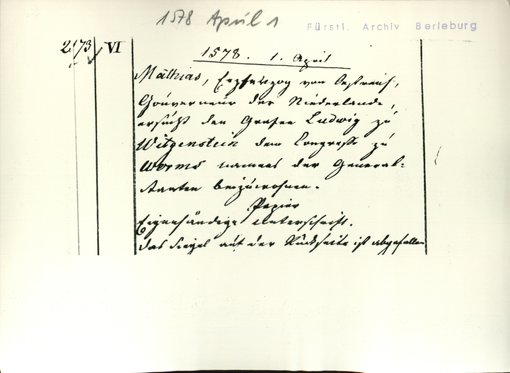 1578 April 1
Fürstl. Archiv Berleburg
2573 VI
1578. 1. April
Mathias, Erzherzog von Oestreich,
Gouverneur der Niederlande,
ersucht den Grafen Ludwig zu
Witgenstein dem Congresse zu
Worms namens der General-
staaten beizuwohnen.
Papier
Eigenhändige Unterschrift.
Das Siegel auf der Rückseite ist abgefallen